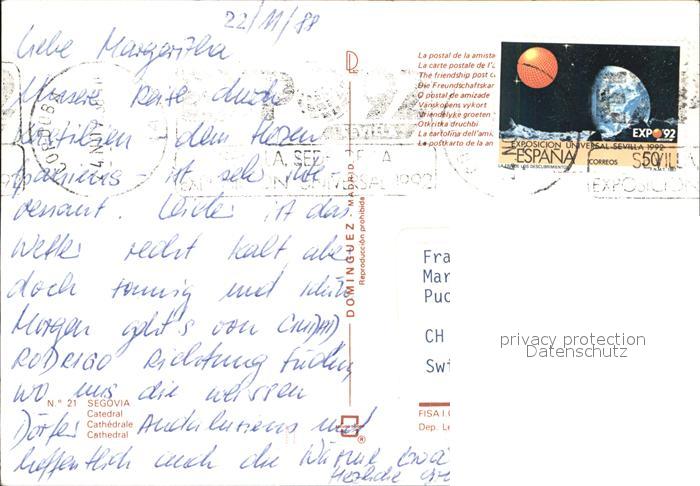 22/11/88
Liebe Margaritha
Unsere Reise durch
Kastilien - dem Herzen
Spaniens - ist sehr inte
ressant. Leider ist das
Wetter recht kalt, aber
doch sonnig und
Morgen geht's von CIUDAD
RODRIGO Richtung Süden,
wo uns die weissen
Dörfer Andalusiens und
hoffentlich auch die Wärme
Herzliche
Nº 21 SEGOVIA
Catedral
Cathédrale
Cathedral
DOMINGUEZ - MADRID
Reproducción prohibida
La postal de la amista
La carte postale de l'
The friendship post c
Die Freundschaftskar
O postal de amizade
Vänskapens vykort
Vriendelyke groeten
Otkritka druchbi
La cartolina dell'ami
La postkarta de la an
EXPO'92
EXPOSICION UNIVERSAL SEVILLA 1992
ESPAÑA
CORREOS
50
LA ERA DE LOS DESCUBRIMIENTOS
EXPOSICION
Fra
Mar
Puc
CH
Swi
FISA I.
Dep. Le
privacy protection
Datenschutz